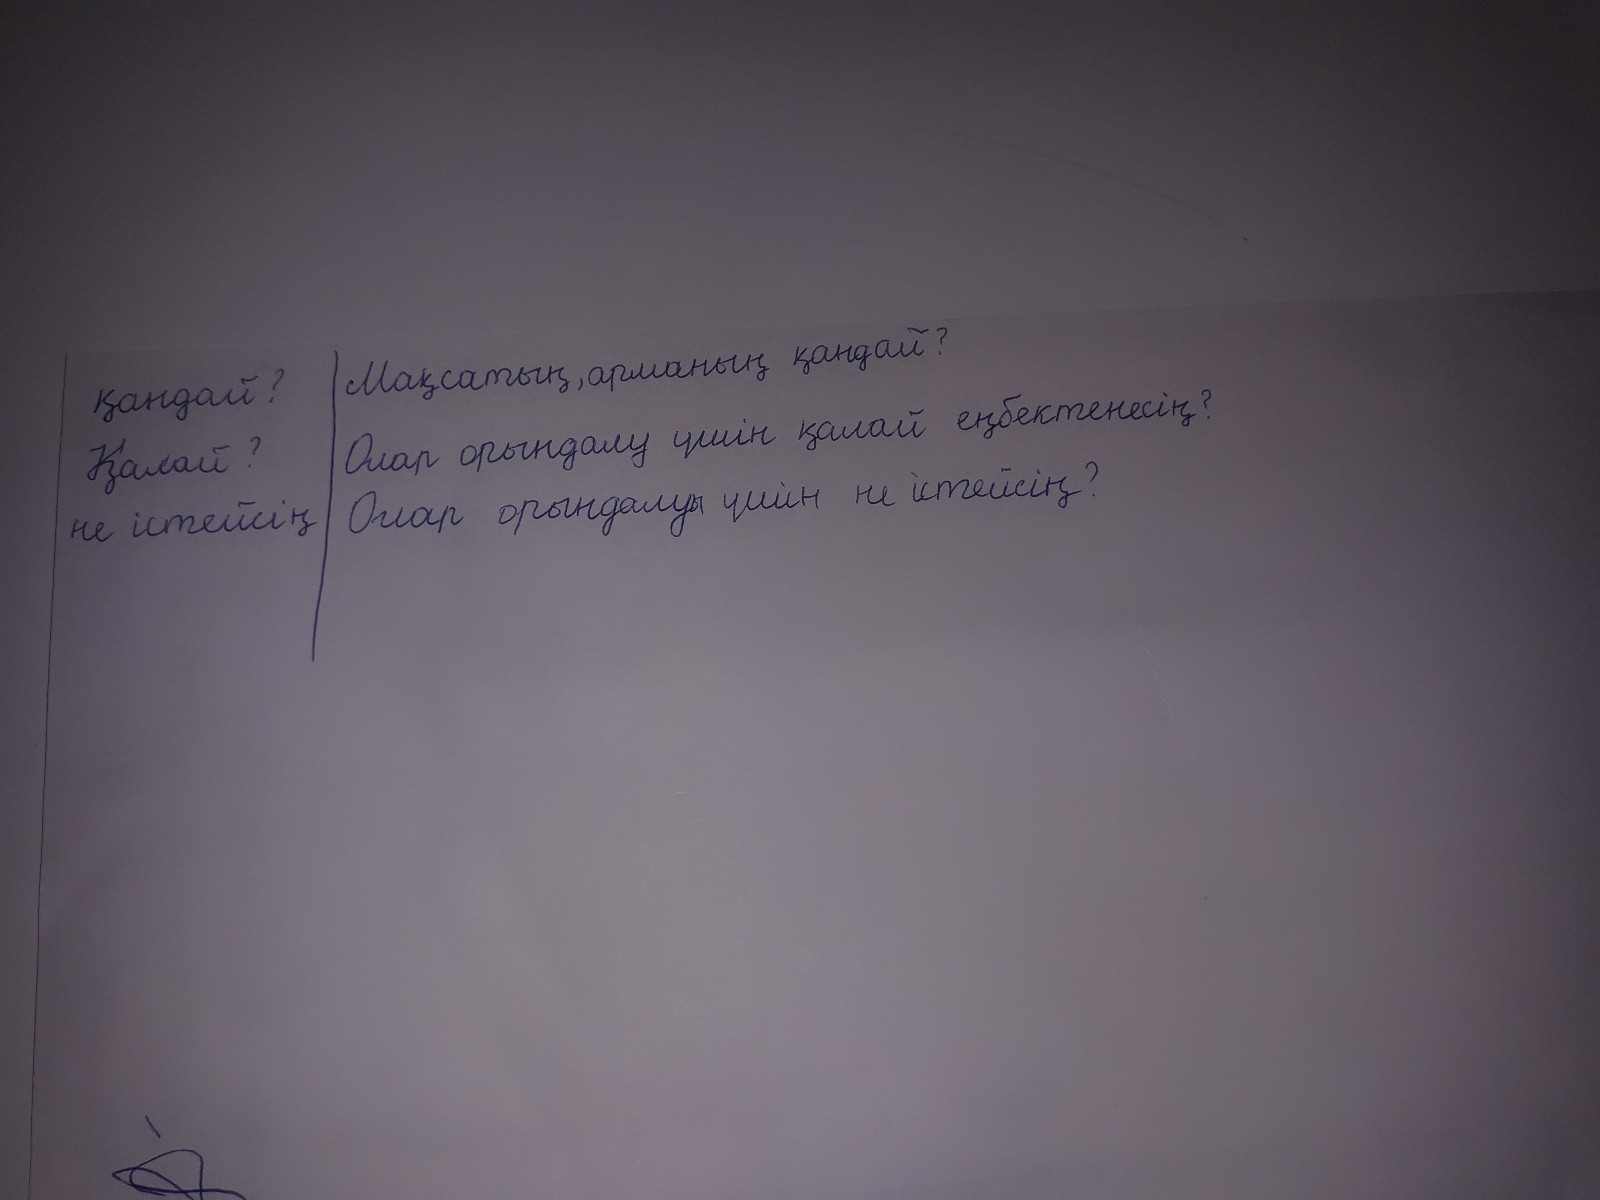 қандай? Мақсатың, арманың қандай?
Қалай? Олар орындалу үшін қалай еңбектенесің?
не істейсің Олар орындалуы үшін не істейсің?